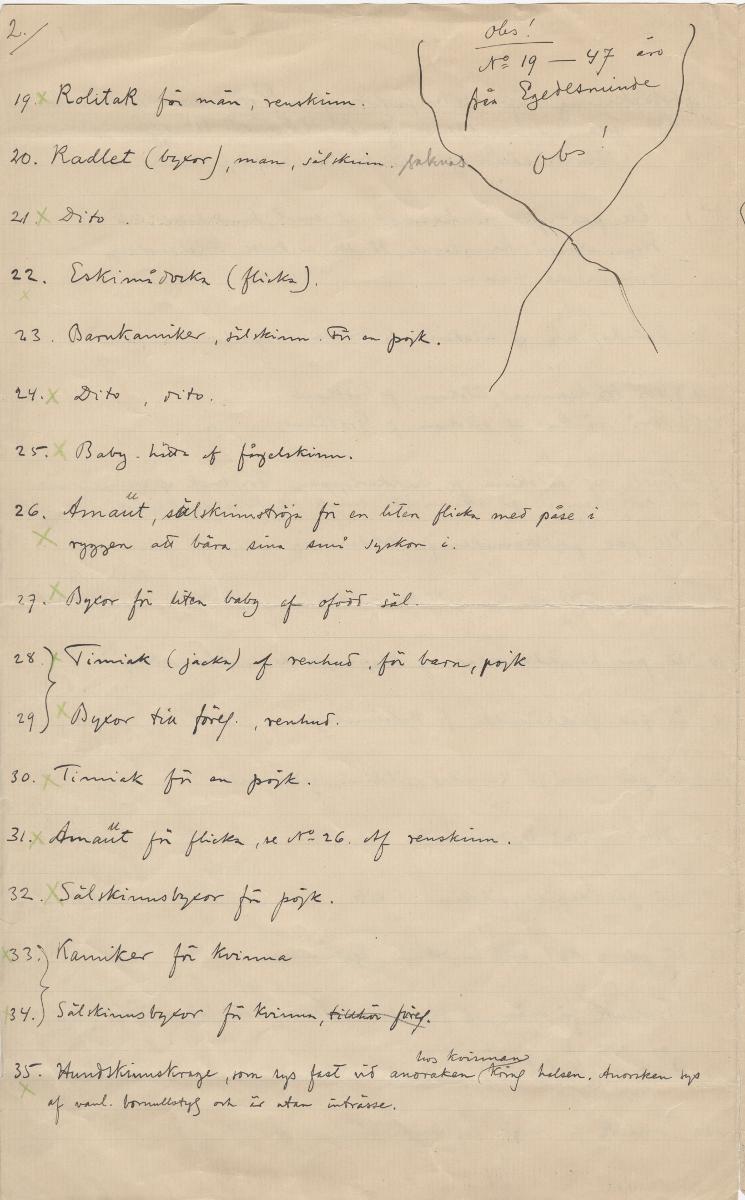 2./
obs!
No 19 — 47 äro
från Egedesminde
obs!
19. x Kolitak för män, renskinn.
20. Kadlet (byxor), man, sälskinn. saknas
21 x Dito.
22. Eskimådocka (flicka).
x
23. Barnkamiker, sälskinn. För en pojk.
24. x Dito, dito.
25. x Baby-hätta af fågelskinn.
26. Amaüt, sälskinnströja för en liten flicka med påse i
x ryggen att bära sina små syskon i.
27. x Byxor för liten baby af ofödd säl.
28 x Timiak (jacka) af renhud, för barn, pojk
29 x Byxor till föreg., renhud.
30. x Timiak för en pojk.
31. x Amaüt för flicka, se No 26. Af renskinn.
32. x Sälskinnsbyxor för pojk.
x 33. Kamiker för kvinna
34. Sälskinnsbyxor för kvinna, tillhör föreg.
hos kvinnan
35. Hundskinnskrage, som sys fast vid anoraken kring halsen. Anoraken sys
x af vanl. bomullstyg och är utan intresse.